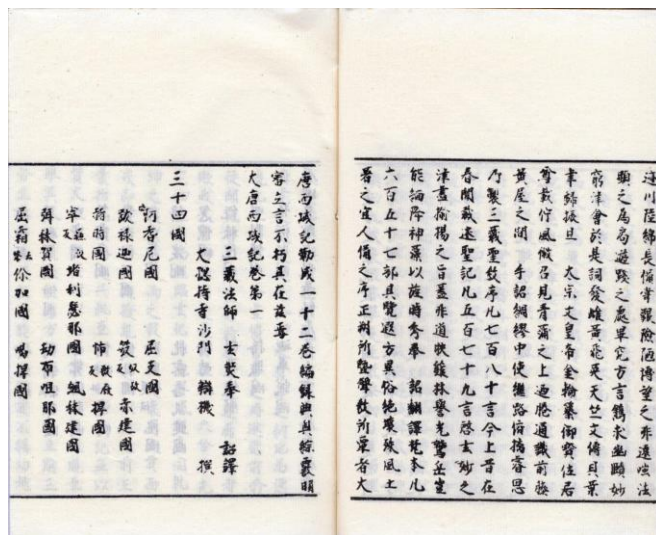 邈川陸綿長備嘗艱險陋博望之非遠嗤法
顯之為局遊踐之處畢究方言鐫求幽賾妙
窮津會於是詞發雌黃飛英天竺文傳貝葉
聿歸振旦 太宗文皇帝金輪纂御寶位居
尊載佇風徽召見青蒲之上迺眷通識前膝
黃屋之間 手詔綢繆中使繼路俯摛睿思
乃製三藏聖教序凡七百八十言今上昔在
春闈裁述聖記凡五百七十九言啓玄妙之
津盡揄揚之旨蓋非道映雞林譽光鷲岳豈
能緬降神藻以旌時秀奉 詔翻譯梵本凡
六百五十七部具覽遐方異俗絕壤殊風土
著之宜人倫之序正朔所暨聲教所覃著大
唐西域記勒成一十二卷編錄典奧綜覈明
審立言不朽其在茲焉
大唐西域記卷第一
三藏法師 玄奘奉 詔譯
大總持寺沙門 辯機 撰
三十四國
阿耆尼國 屈支國
跋祿迦國 笯奴故反赤建國
赭時國 㤄敷發反捍國
窣堵利瑟那國 颯秣建國
弭秣賀國 劫布呾那國
屈霜去聲你迦國 喝捍國